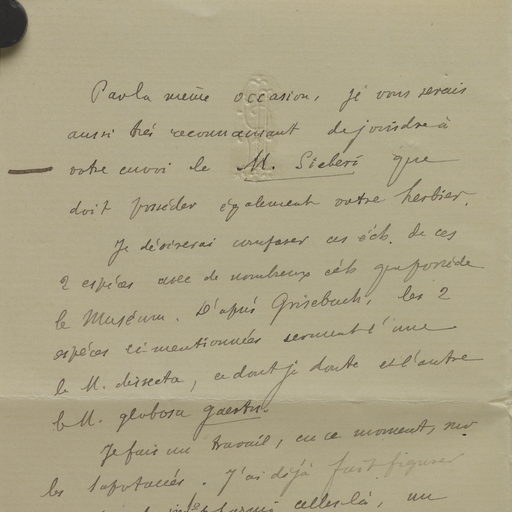 Par la même occasion, je vous serais
aussi très reconnaissant de joindre à
votre envoi le M. Sieberi que
doit posséder également votre herbier.
Je désirerai comparer ces éch. de ces
2 espéces avec de nombreux éch que possède
le Muséum. D'après Grisebach, les 2
espéces ci mentionnées seraient l'une
le M. dissecta, ce dont je doute et l'autre
le M. globosa Gaertn.
Je fais un travail, en ce moment, sur
les Sapotacées. J'ai déjà fait figurer
parmi celles là, un